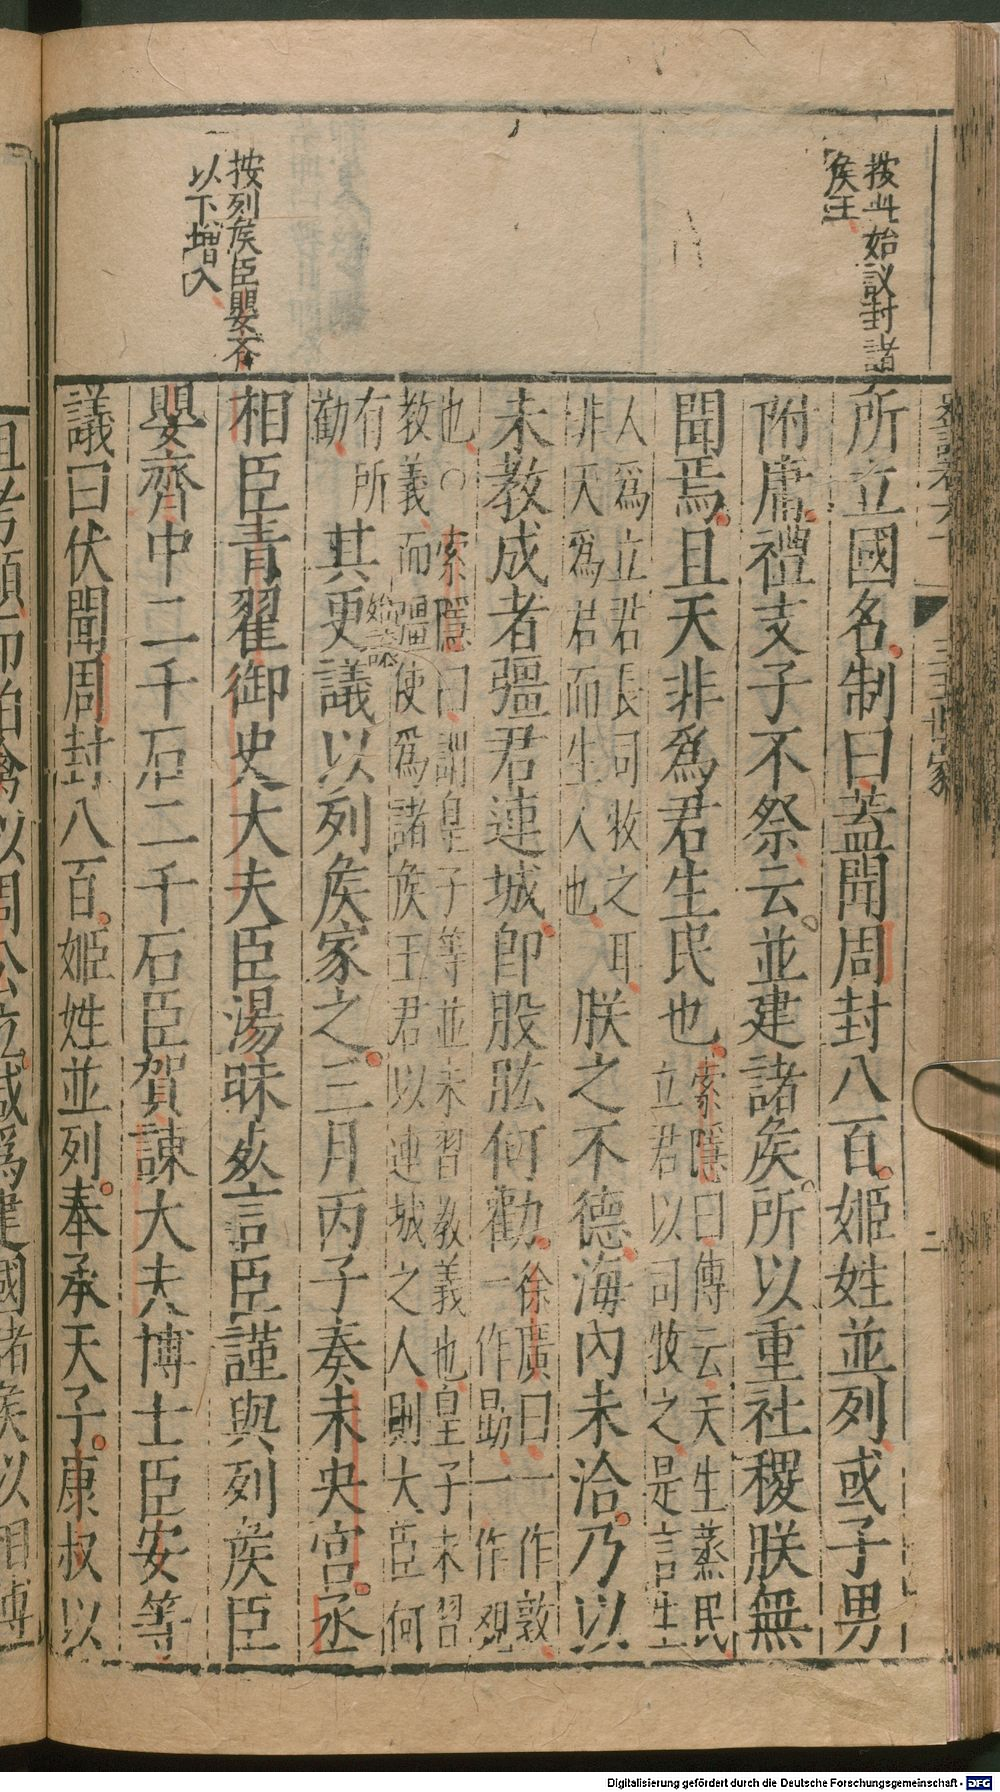 按此始議封諸
侯王
所立國名制曰蓋聞周封八百姬姓並列或子男
附庸禮支子不祭云並建諸侯所以重社稷朕無
聞焉且天非爲君生民也索隱曰傳云天生蒸民
立君以司牧之是言生
人爲立君長司牧之耳
非天爲君而生人也朕之不德海內未洽乃以
未教成者彊君連城卽股肱何勸徐廣曰一作敦
一作勗一作觀
也○索隱曰謂皇子等並未習教義也皇子未習
教義而彊使爲諸侯王君以連城之人則大臣何
有所
勸其更議以列侯家之三月丙子奏未央宮丞
相臣青翟御史大夫臣湯昧死言臣謹與列侯臣
嬰齊中二千石二千石臣賀諫大夫博士臣安等
議曰伏聞周封八百姬姓並列奉承天子康叔以
按列侯臣嬰齊
以下增入
三王世家
二
祖考顯而伯禽以周公立咸爲建國諸侯以相傅
Digitalisierung gefördert durch die Deutsche Forschungsgemeinschaft - DFG